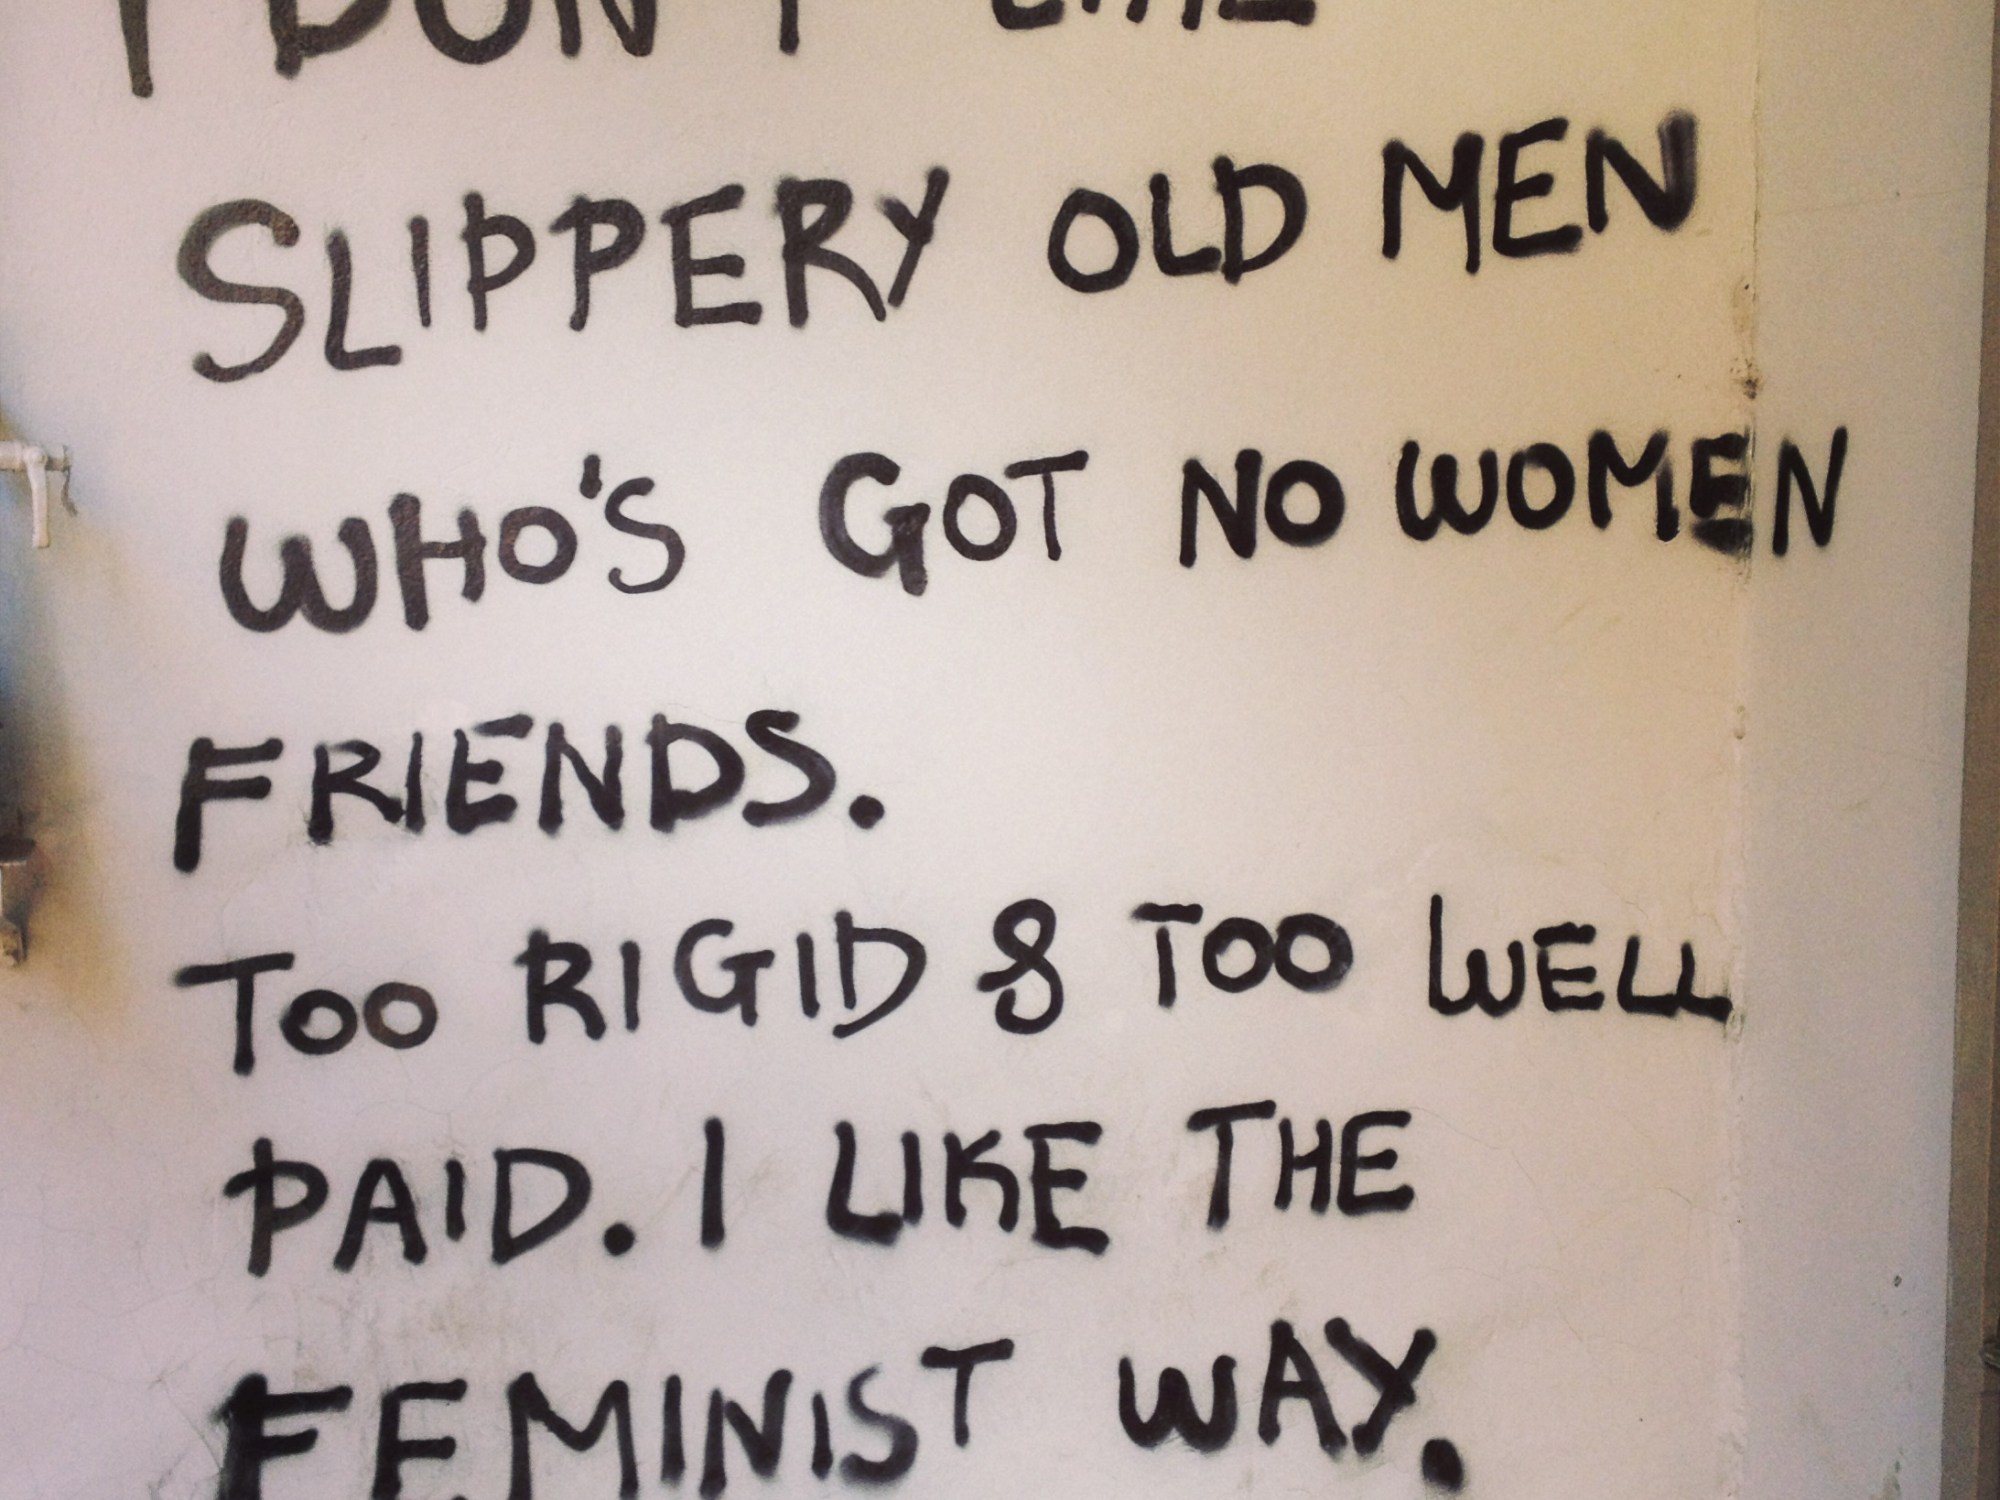 I DON'T LIKE
SLIPPERY OLD MEN
WHO'S GOT NO WOMEN
FRIENDS.
TOO RIGID & TOO WELL
PAID. I LIKE THE
FEMINIST WAY.